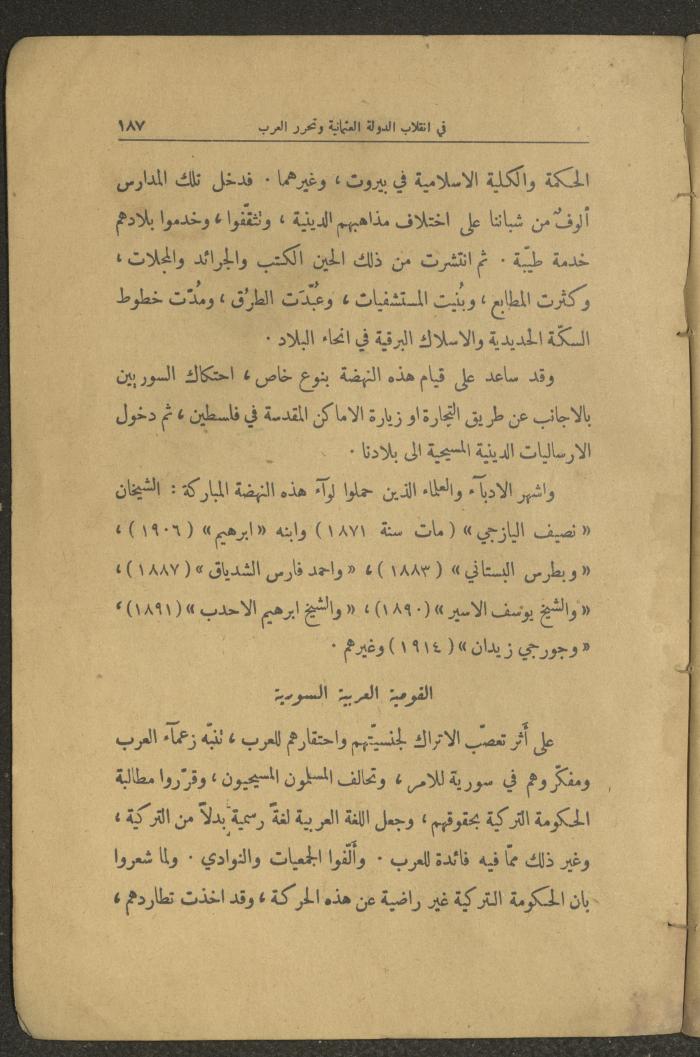 في انقلاب الدولة العثمانية وتحرر العرب ١٨٧
الحكمة والكلية الاسلامية في بيروت ، وغيرهما . فدخل تلك المدارس
ألوفٌ من شباننا على اختلاف مذاهبهم الدينية ، وتثقّفوا ، وخدموا بلادهم
خدمة طيّبة . ثم انتشرت من ذلك الحين الكتب والجرائد والمجلات ،
وكثرت المطابع ، وبُنيت المستشفيات ، وعُبّدَت الطرُق ، ومُدّت خطوط
السكّة الحديدية والاسلاك البرقية في انحاء البلاد .
وقد ساعد على قيام هذه النهضة بنوع خاص ، احتكاك السوريين
بالاجانب عن طريق التجارة او زيارة الاماكن المقدسة في فلسطين ، ثم دخول
الارساليات الدينية المسيحية الى بلادنا .
واشهر الادبآء والعلماء الذين حملوا لوآء هذه النهضة المباركة : الشيخان
« نصيف اليازجي » ( مات سنة ١٨٧١ ) وابنه « ابرهيم » ( ١٩٠٦ ) ،
« وبطرس البستاني » ( ١٨٨٣ ) ، « واحمد فارس الشدياق » ( ١٨٨٧ ) ،
« والشيخ يوسف الاسير » ( ١٨٩٠ ) ، « والشيخ ابرهيم الاحدب » ( ١٨٩١ ) ،
« وجورجي زيدان » ( ١٩١٤ ) وغيرهم .
القومية العربية السورية
على أثر تعصّب الاتراك لجنسيّتهم واحتقارهم للعرب ، تنبّه زعمآء العرب
ومفكّروهم في سورية للامر ، وتحالف المسلمون المسيحيون ، وقرّروا مطالبة
الحكومة التركية بحقوقهم ، وجعل اللغة العربية لغةً رسمية بدلاً من التركية ،
وغير ذلك ممّا فيه فائدة للعرب . وألّفوا الجمعيات والنوادي . ولما شعروا
بان الحكومة التركية غير راضية عن هذه الحركة ، وقد اخذت تطاردهم ،